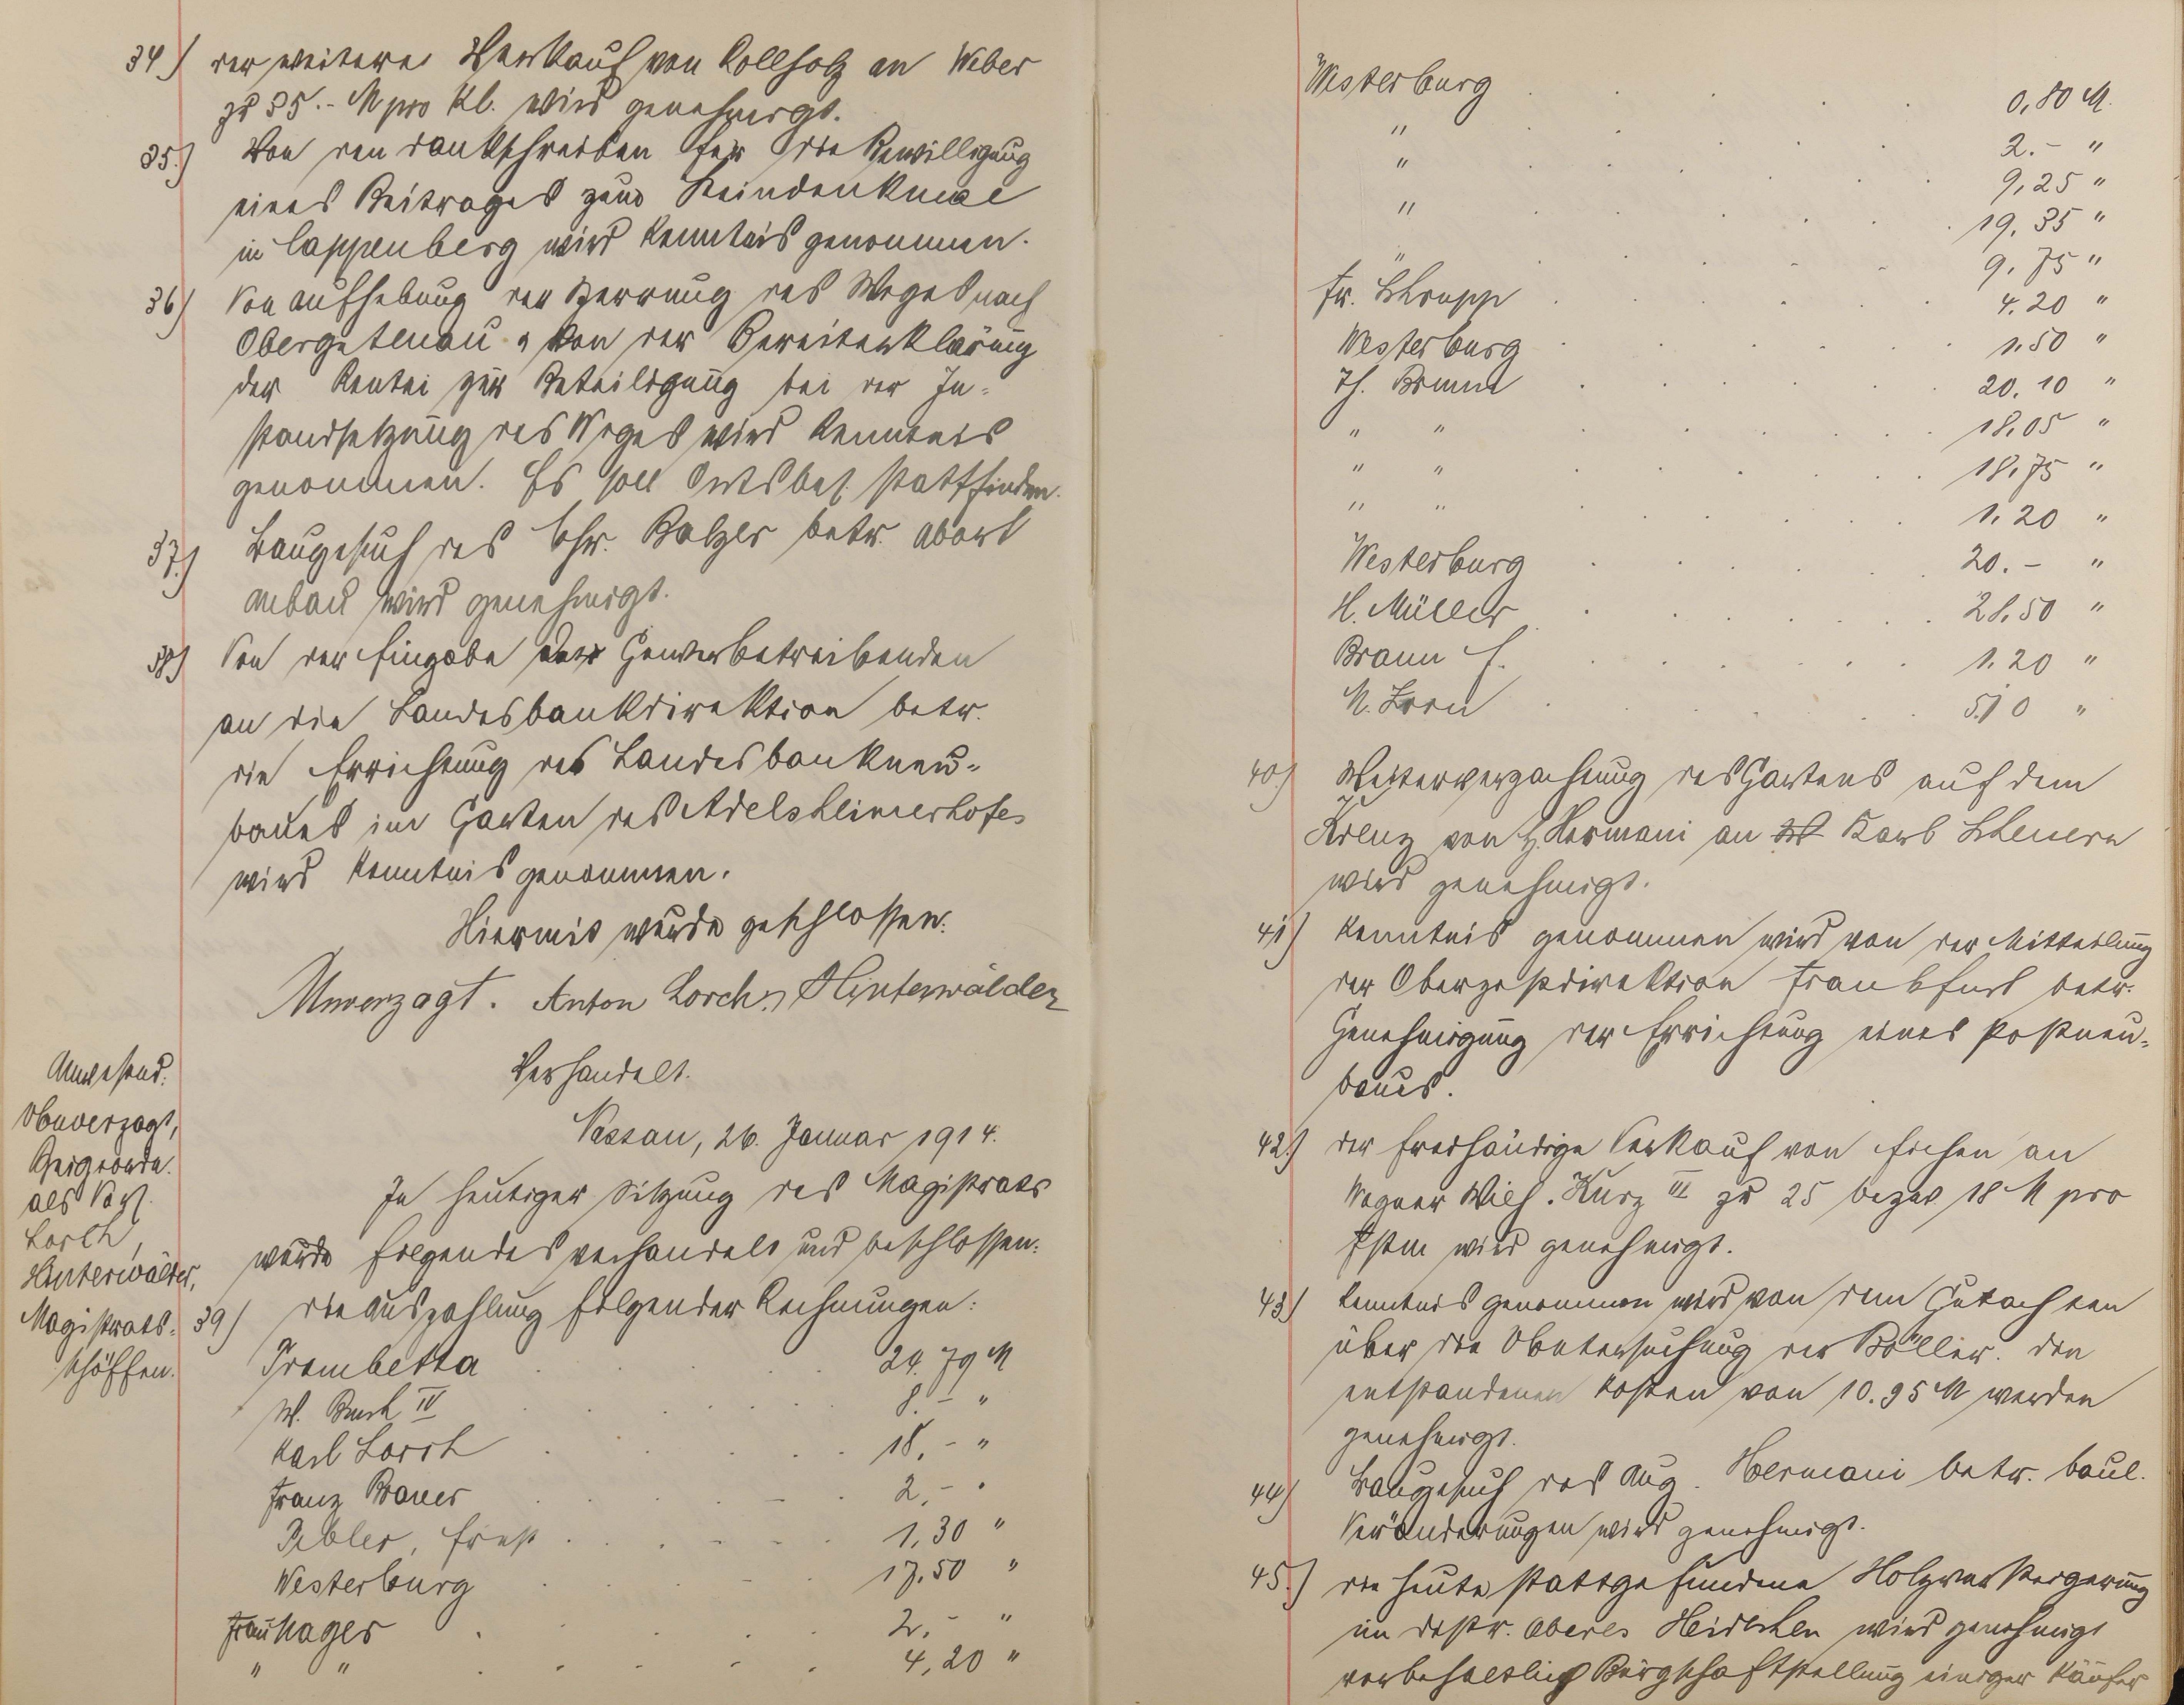 34) der weitere Verkauf von Rollholz an Weber
zu 35.- M pro Kl. wird genehmigt.
35.) Von den Dankschreiben für die Bewilligung
eines Beitrages zum Steindenkmal
in Cappenberg wird Kenntnis genommen.
36) Von Aufhebung der Sperrung des Weges nach
Obergutenau u. von der Bereiterklärung
der Rentei zur Beteiligung bei der In-
standsetzung des Weges wird Kenntnis
genommen. Es soll Ortsbes. stattfinden.
37.) Baugesuch des Chr. Balzer betr. Abort
anbau wird genehmigt.
38) Von der Eingabe der Gewerbetreibenden
an die Landesbankdirektion betr.
die Errichtung des Landesbankneu-
baues im Garten des Adelsheimerhofes
wird Kenntnis genommen.
Hiermit wurde geschlossen.
Unverzagt. Anton Lorch. Hinterwälder
Verhandelt.
Nassau, 26. Januar 1914.
Anwesend:
Unverzagt,
Beigeordn.
als Vors.
Lorch,
Hinterwälder,
Magistrats-
schöffen.
In heutiger Sitzung des Magistrats
wurde folgendes verhandelt und beschlossen:
39) die Auszahlung folgender Rechnungen:
Trombetta 24.79 M
W. Busch IV 8.- "
Karl Lorch 18.- "
Franz Bauer 2.- "
Ernst 1,30 "
Westerburg 17.50 "
Frau Hages 2.- "
" " 4,20 "
Westerburg 0,80 M.
" 2.- "
" 9,25 "
" 19,35 "
" 9,75 "
Fr. Schrupp 4.20 "
Westerburg 1.50 "
Th. Brumm 20.10 "
" " 18,05 "
" " 18,75 "
" " 1.20 "
Westerburg 20.- "
H. Müller 28,50 "
Braun E. 1.20 "
M. 5,10 "
40.) Weiterverpachtung des Gartens auf dem
Kreuz von H. Hermani an Karl
wird genehmigt.
41) Kenntnis genommen wird von der Mitteilung
der Oberpostdirektion Frankfurt betr.
Genehmigung der Errichtung eines Postneu-
baues.
42.) der freihändige Verkauf von Eichen an
Wagner Wilh. Kurz III zu 25 bezw. 18 M pro
Fstm wird genehmigt.
43) Kenntnis genommen wird von dem Gutachten
über die Untersuchung der Böller. Die
entstandenen Kosten von 10.95 M werden
genehmigt.
44) Baugesuch des Aug. Hermani betr. baul.
Veränderungen wird genehmigt.
45.) die heute stattgefundene Holzversteigerung
im Distr. Oberes wird genehmigt
vorbehaltlich Bürgschaftstellung einiger Käufer